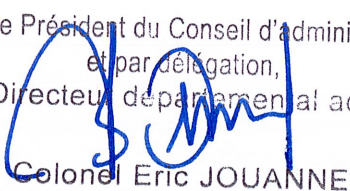 e Président du Conseil d'admini
et par délégation,
Directeur départemental ad
Colonel Eric JOUANNE